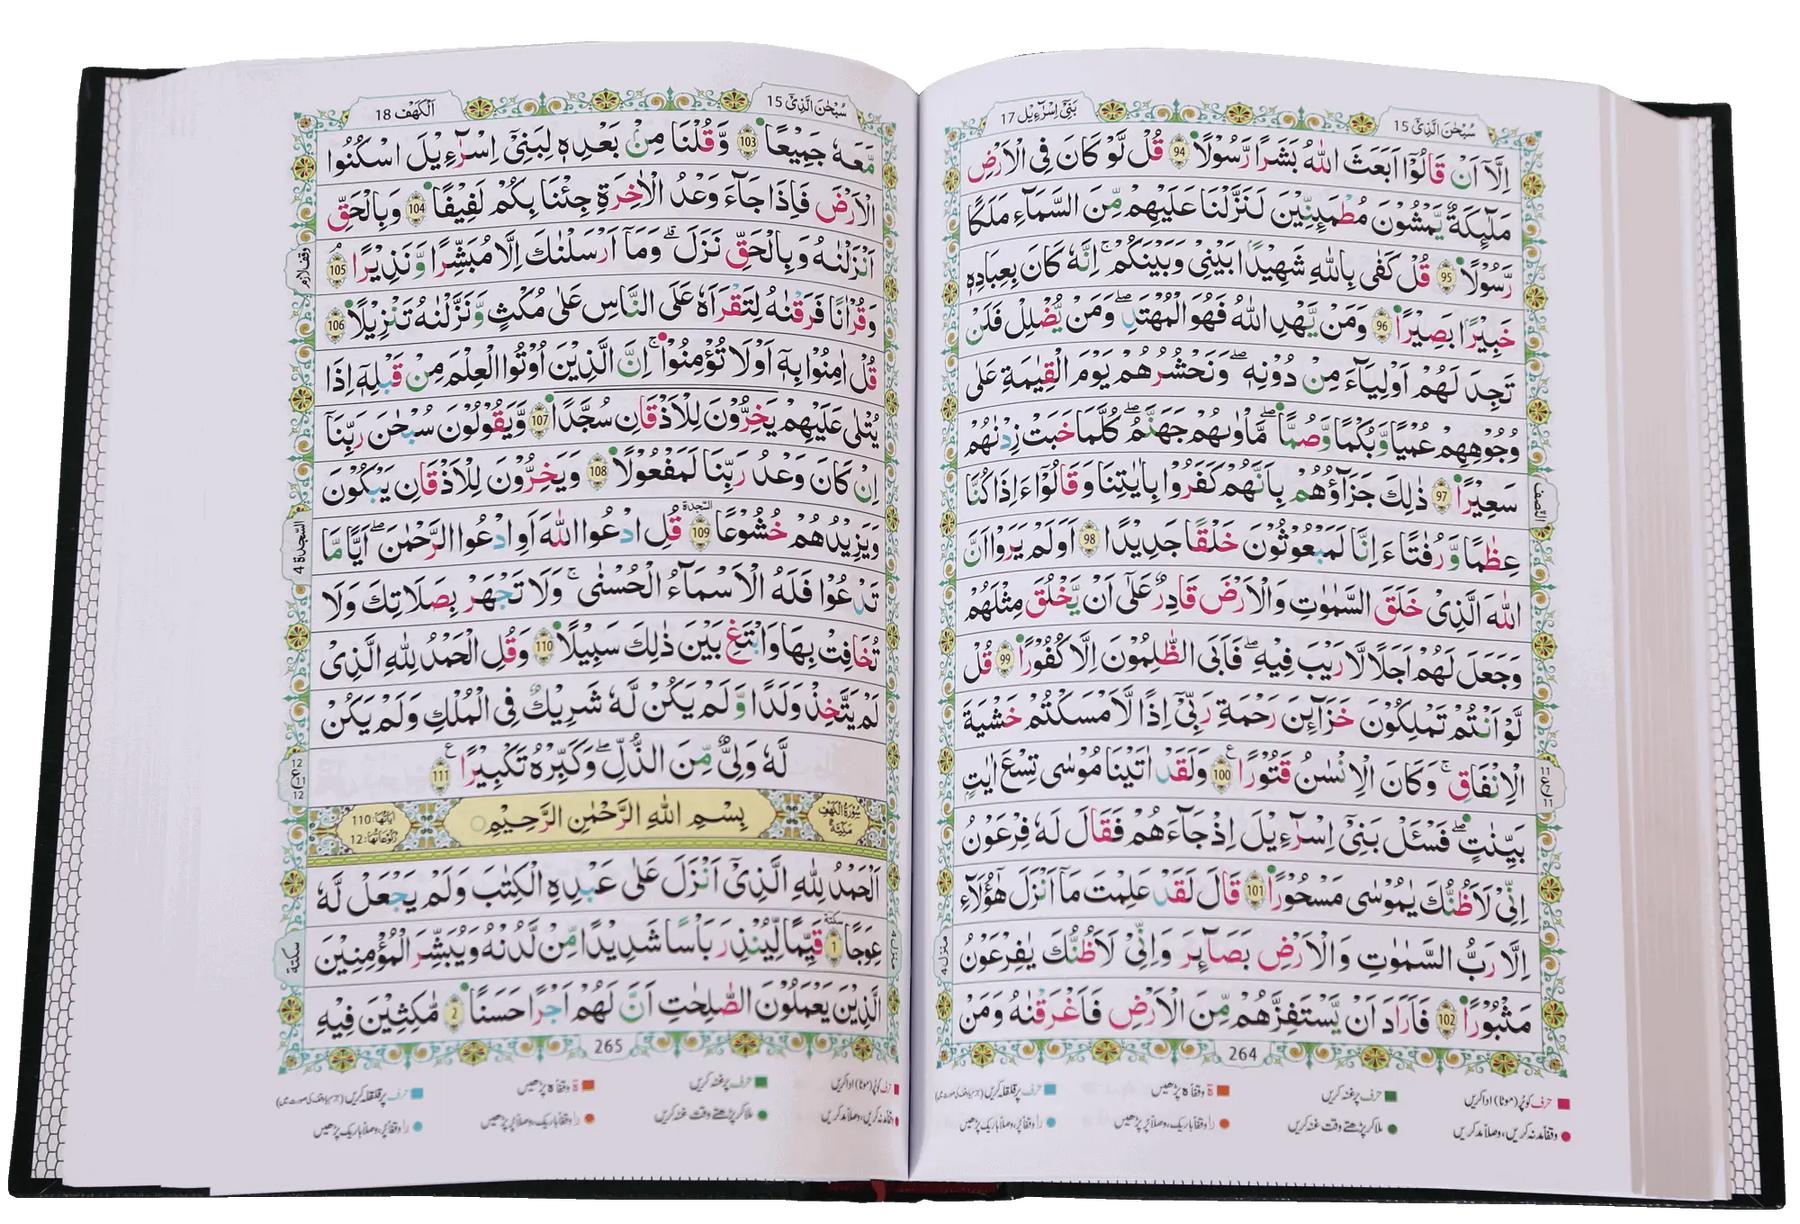 سُبْحٰنَ الَّذِیْۤ 15
بَنِیْۤ اِسْرَآءِیْل 17
اِلَّاۤ اَنْ قَالُوْۤا اَبَعَثَ اللّٰهُ بَشَرًا رَّسُوْلًا 94 قُلْ لَّوْ كَانَ فِی الْاَرْضِ
مَلٰٓئِكَةٌ یَّمْشُوْنَ مُطْمَئِنِّیْنَ لَنَزَّلْنَا عَلَیْهِمْ مِّنَ السَّمَآءِ مَلَكًا
رَّسُوْلًا 95 قُلْ كَفٰی بِاللّٰهِ شَهِیْدًۢا بَیْنِیْ وَ بَیْنَكُمْ ؕ اِنَّهٗ كَانَ بِعِبَادِهٖ
خَبِیْرًۢا بَصِیْرًا 96 وَ مَنْ یَّهْدِ اللّٰهُ فَهُوَ الْمُهْتَدِ ۚ وَ مَنْ یُّضْلِلْ فَلَنْ
تَجِدَ لَهُمْ اَوْلِیَآءَ مِنْ دُوْنِهٖ ؕ وَ نَحْشُرُهُمْ یَوْمَ الْقِیٰمَةِ عَلٰی
وُجُوْهِهِمْ عُمْیًا وَّ بُكْمًا وَّ صُمًّا ؕ مَاْوٰىهُمْ جَهَنَّمُ ؕ كُلَّمَا خَبَتْ زِدْنٰهُمْ
سَعِیْرًا 97 ذٰلِكَ جَزَآؤُهُمْ بِاَنَّهُمْ كَفَرُوْا بِاٰیٰتِنَا وَ قَالُوْۤا ءَاِذَا كُنَّا
عِظَامًا وَّ رُفَاتًا ءَاِنَّا لَمَبْعُوْثُوْنَ خَلْقًا جَدِیْدًا 98 اَوَ لَمْ یَرَوْا اَنَّ
اللّٰهَ الَّذِیْ خَلَقَ السَّمٰوٰتِ وَ الْاَرْضَ قَادِرٌ عَلٰۤی اَنْ یَّخْلُقَ مِثْلَهُمْ
وَ جَعَلَ لَهُمْ اَجَلًا لَّا رَیْبَ فِیْهِ ؕ فَاَبَی الظّٰلِمُوْنَ اِلَّا كُفُوْرًا 99 قُلْ
لَّوْ اَنْتُمْ تَمْلِكُوْنَ خَزَآئِنَ رَحْمَةِ رَبِّیْۤ اِذًا لَّاَمْسَكْتُمْ خَشْیَةَ
الْاِنْفَاقِ ؕ وَ كَانَ الْاِنْسَانُ قَتُوْرًا 100 وَ لَقَدْ اٰتَیْنَا مُوْسٰی تِسْعَ اٰیٰتٍۭ
بَیِّنٰتٍ فَسْـَٔلْ بَنِیْۤ اِسْرَآءِیْلَ اِذْ جَآءَهُمْ فَقَالَ لَهٗ فِرْعَوْنُ
اِنِّیْ لَاَظُنُّكَ یٰمُوْسٰی مَسْحُوْرًا 101 قَالَ لَقَدْ عَلِمْتَ مَاۤ اَنْزَلَ هٰۤؤُلَآءِ
اِلَّا رَبُّ السَّمٰوٰتِ وَ الْاَرْضِ بَصَآئِرَ ۚ وَ اِنِّیْ لَاَظُنُّكَ یٰفِرْعَوْنُ
مَثْبُوْرًا 102 فَاَرَادَ اَنْ یَّسْتَفِزَّهُمْ مِّنَ الْاَرْضِ فَاَغْرَقْنٰهُ وَ مَنْ
النصف
منزل 4
264
حرف کو پُر (موٹا) ادا کریں
حرف پر غنہ کریں
ۃ وقفاً ہ پڑھیں
حرف پر قلقلہ کریں
وقفاً مد نہ کریں، وصلاً مد کریں
ملا کر پڑھتے وقت غنہ کریں
را وقفاً باریک، وصلاً پُر پڑھیں
را وقفاً پُر، وصلاً باریک پڑھیں
سُبْحٰنَ الَّذِیْۤ 15
اَلْكَهْف 18
مَّعَهٗ جَمِیْعًا 103 وَّ قُلْنَا مِنْۢ بَعْدِهٖ لِبَنِیْۤ اِسْرَآءِیْلَ اسْكُنُوا
الْاَرْضَ فَاِذَا جَآءَ وَعْدُ الْاٰخِرَةِ جِئْنَا بِكُمْ لَفِیْفًا 104 وَ بِالْحَقِّ
اَنْزَلْنٰهُ وَ بِالْحَقِّ نَزَلَ ؕ وَ مَاۤ اَرْسَلْنٰكَ اِلَّا مُبَشِّرًا وَّ نَذِیْرًا 105
وَ قُرْاٰنًا فَرَقْنٰهُ لِتَقْرَاَهٗ عَلَی النَّاسِ عَلٰی مُكْثٍ وَّ نَزَّلْنٰهُ تَنْزِیْلًا 106
قُلْ اٰمِنُوْا بِهٖۤ اَوْ لَا تُؤْمِنُوْا ؕ اِنَّ الَّذِیْنَ اُوْتُوا الْعِلْمَ مِنْ قَبْلِهٖۤ اِذَا
یُتْلٰی عَلَیْهِمْ یَخِرُّوْنَ لِلْاَذْقَانِ سُجَّدًا 107 وَّ یَقُوْلُوْنَ سُبْحٰنَ رَبِّنَاۤ
اِنْ كَانَ وَعْدُ رَبِّنَا لَمَفْعُوْلًا 108 وَ یَخِرُّوْنَ لِلْاَذْقَانِ یَبْكُوْنَ
وَ یَزِیْدُهُمْ خُشُوْعًا 109 السجدة قُلِ ادْعُوا اللّٰهَ اَوِ ادْعُوا الرَّحْمٰنَ ؕ اَیًّا مَّا
تَدْعُوْا فَلَهُ الْاَسْمَآءُ الْحُسْنٰی ۚ وَ لَا تَجْهَرْ بِصَلَاتِكَ وَ لَا
تُخَافِتْ بِهَا وَ ابْتَغِ بَیْنَ ذٰلِكَ سَبِیْلًا 110 وَ قُلِ الْحَمْدُ لِلّٰهِ الَّذِیْ
لَمْ یَتَّخِذْ وَلَدًا وَّ لَمْ یَكُنْ لَّهٗ شَرِیْكٌ فِی الْمُلْكِ وَ لَمْ یَكُنْ
لَّهٗ وَلِیٌّ مِّنَ الذُّلِّ وَ كَبِّرْهُ تَكْبِیْرًا 111
سُوْرَةُ الْكَهْفِ مَكِّیَّةٌ
بِسْمِ اللّٰهِ الرَّحْمٰنِ الرَّحِیْمِ
اٰیَاتُهَا: 110
رُكُوْعَاتُهَا: 12
اَلْحَمْدُ لِلّٰهِ الَّذِیْۤ اَنْزَلَ عَلٰی عَبْدِهِ الْكِتٰبَ وَ لَمْ یَجْعَلْ لَّهٗ
عِوَجًا 1 سكتة قَیِّمًا لِّیُنْذِرَ بَاْسًا شَدِیْدًا مِّنْ لَّدُنْهُ وَ یُبَشِّرَ الْمُؤْمِنِیْنَ
الَّذِیْنَ یَعْمَلُوْنَ الصّٰلِحٰتِ اَنَّ لَهُمْ اَجْرًا حَسَنًا 2 مَّاكِثِیْنَ فِیْهِ
السجدة 4
سكتة
منزل 4
265
حرف کو پُر (موٹا) ادا کریں
حرف پر غنہ کریں
ۃ وقفاً ہ پڑھیں
حرف پر قلقلہ کریں
وقفاً مد نہ کریں، وصلاً مد کریں
ملا کر پڑھتے وقت غنہ کریں
را وقفاً باریک، وصلاً پُر پڑھیں
را وقفاً پُر، وصلاً باریک پڑھیں